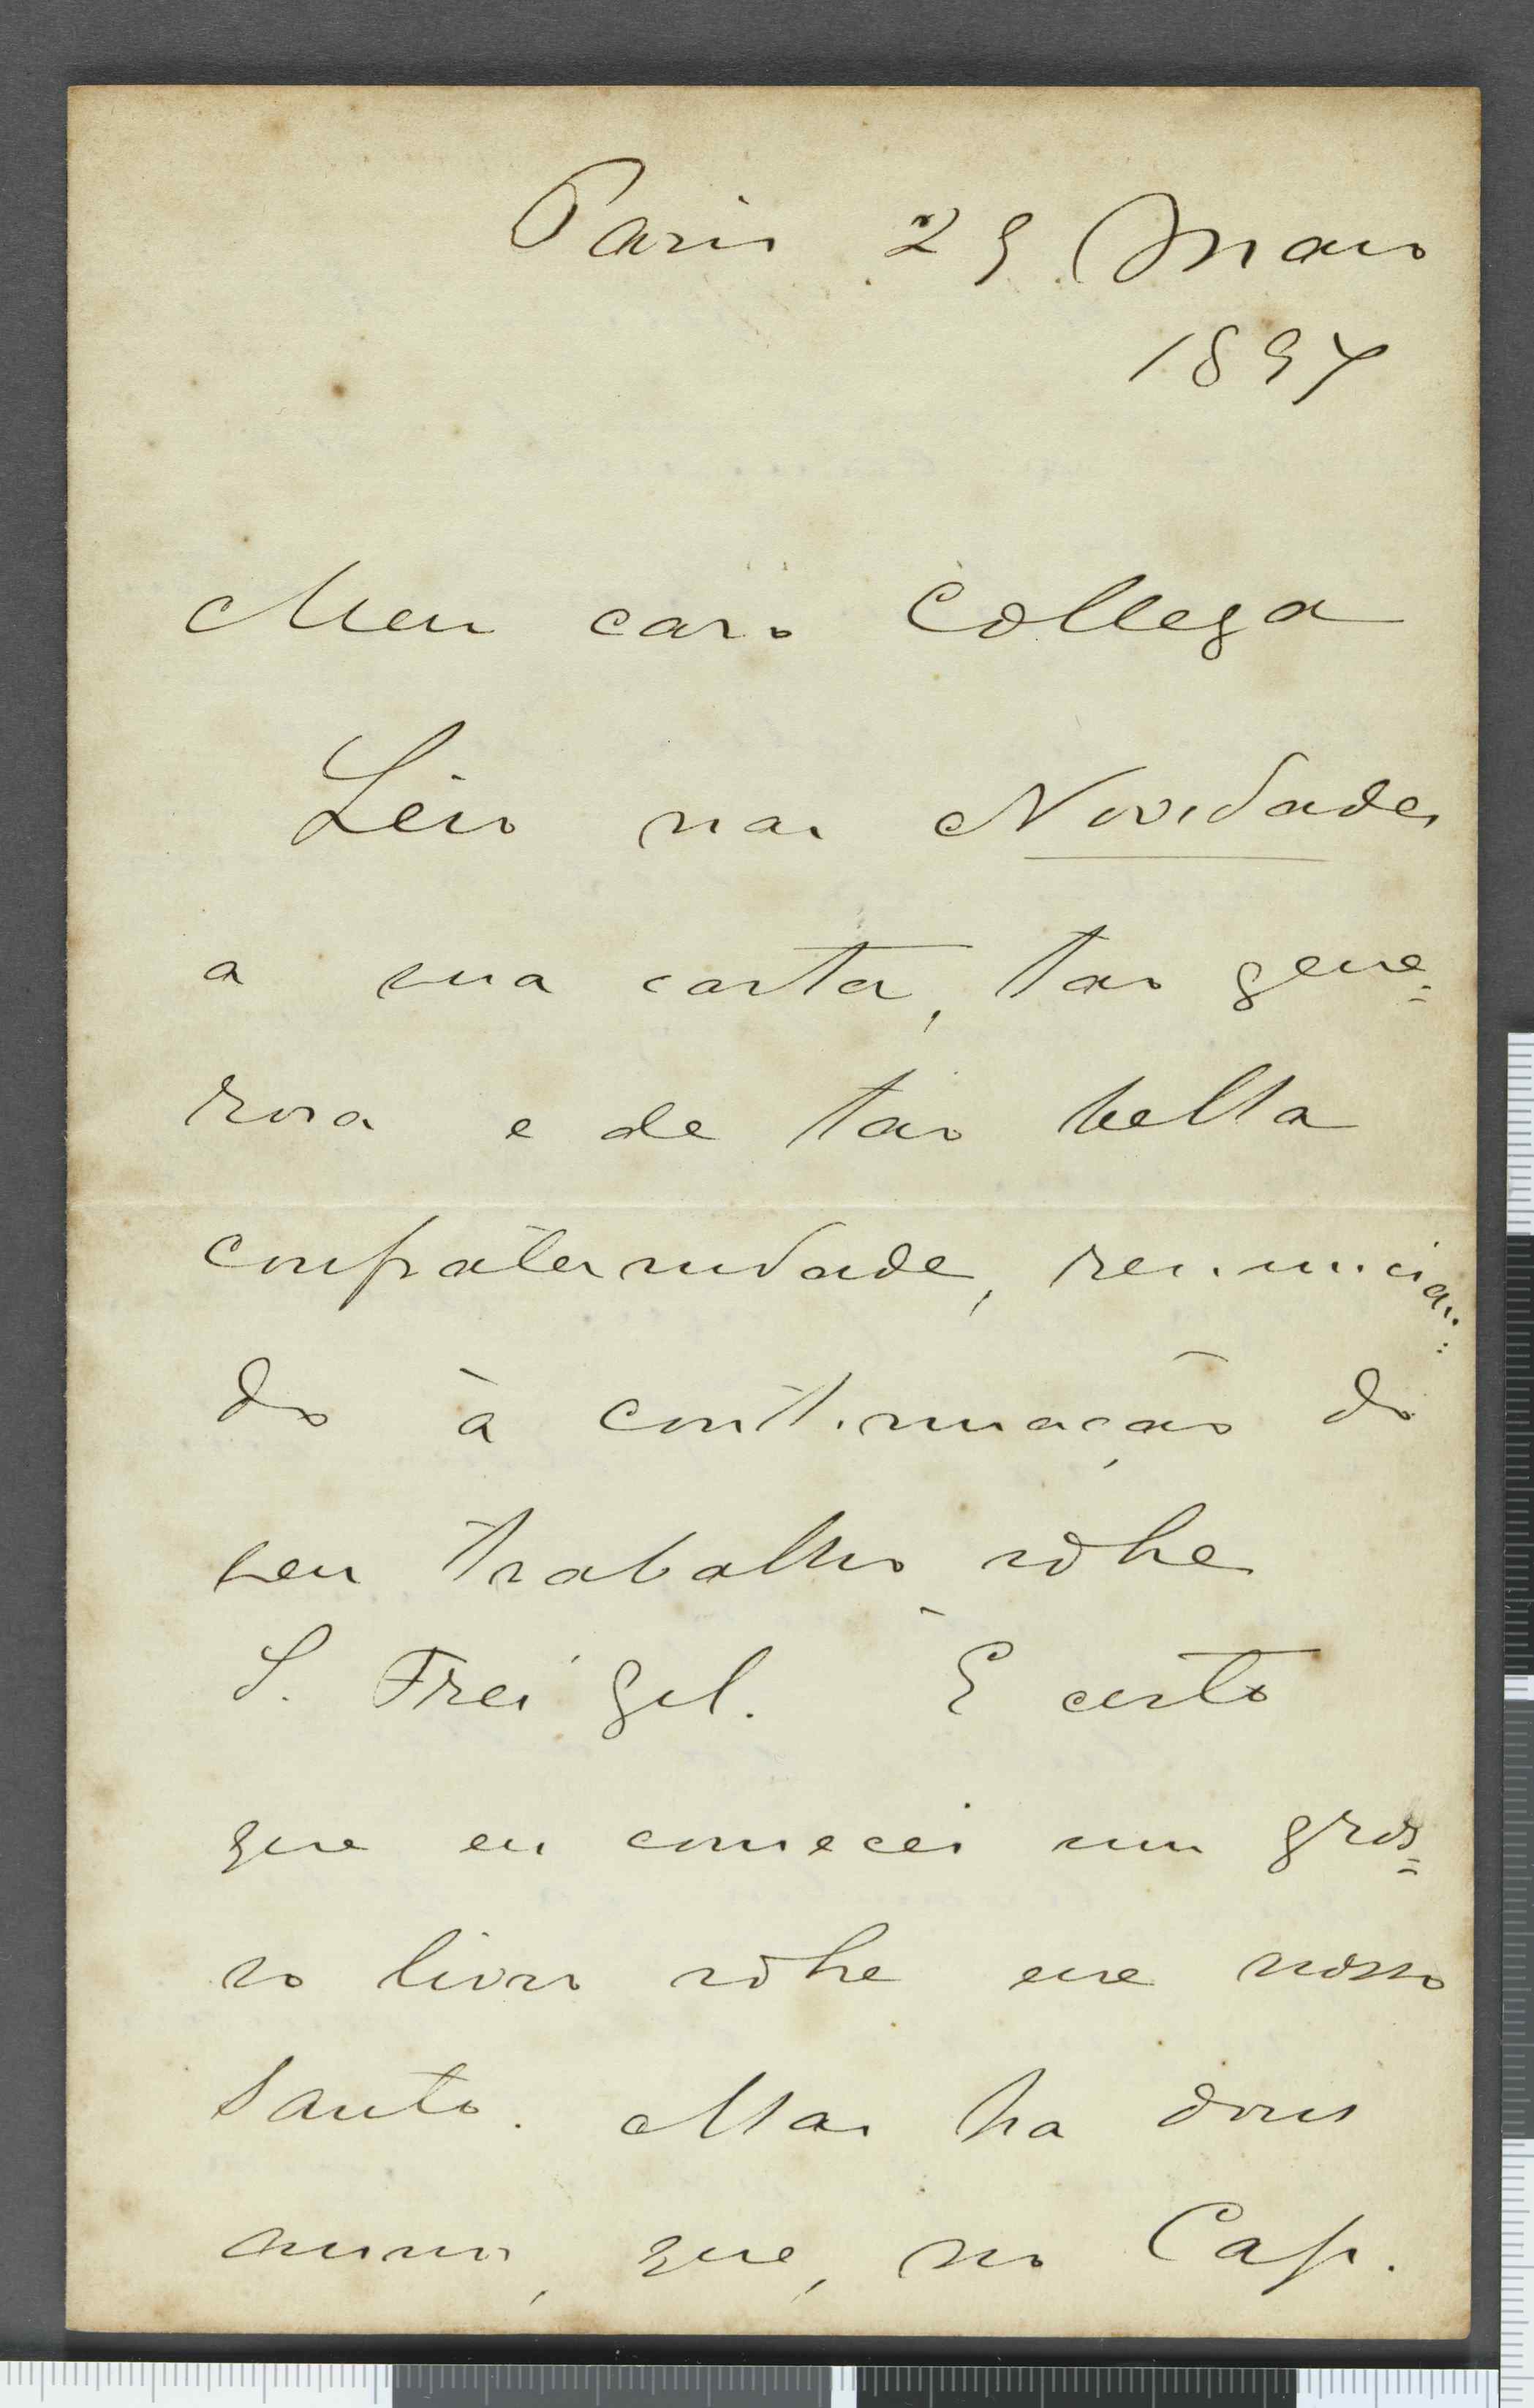 Paris 29 Maio
1897
Meu caro Collega
Leio nas Novidades
a sua carta, tão gene=
rosa e de tão bella
confraternidade, renuncian=
do à continuação do
seu trabalho sobre
S. Frei Gil. É certo
que eu comecei um gros=
so livro sobre esse nosso
Santo. Mas ha dous
annos, que, no Cap.